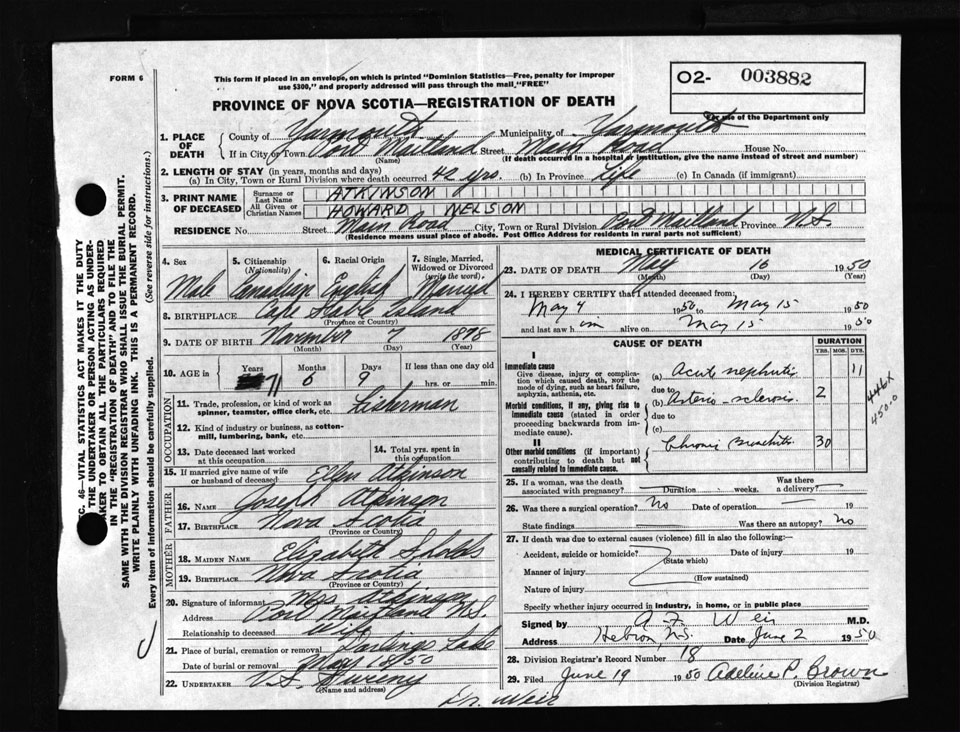 FORM 6
This form if placed in an envelope, on which is printed "Dominion Statistics—Free, penalty for improper
use $300," and properly addressed will pass through the mail "FREE"
O2- 003882
For use of the Department only
PROVINCE OF NOVA SCOTIA—REGISTRATION OF DEATH
1. PLACE OF DEATH
County of Yarmouth Municipality of Yarmouth
If in City or Town Port Maitland Street Main Road House No.
(Name) (If death occurred in a hospital or institution, give the name instead of street and number)
2. LENGTH OF STAY (in years, months and days)
(a) In City, Town or Rural Division where death occurred 42 yrs. (b) In Province Life (c) In Canada (if immigrant)
3. PRINT NAME OF DECEASED
Surname or Last Name ATKINSON
All Given or Christian Names HOWARD NELSON
RESIDENCE No. Street Main Road City, Town or Rural Division Port Maitland Province N.S.
(Residence means usual place of abode. Post Office Address for residents in rural parts not sufficient)
4. Sex Male
5. Citizenship (Nationality) Canadian
6. Racial Origin English
7. Single, Married, Widowed or Divorced (write the word), Married
8. BIRTHPLACE Cape Sable Island
(Province or Country)
9. DATE OF BIRTH November 7 1878
(Month) (Day) (Year)
10. AGE in Years 71 Months 6 Days 9 If less than one day hrs. or min.
OCCUPATION
11. Trade, profession, or kind of work as spinner, teamster, office clerk, etc. Fisherman
12. Kind of industry or business, as cotton-mill, lumbering, bank, etc.
13. Date deceased last worked at this occupation
14. Total yrs. spent in this occupation
15. If married give name of wife or husband of deceased Atkinson
FATHER
16. NAME Joseph Atkinson
17. BIRTHPLACE Nova Scotia
MOTHER
18. MAIDEN NAME Elizabeth
19. BIRTHPLACE Nova Scotia
(Province or Country)
20. Signature of informant Mrs Atkinson
Address Port Maitland N.S.
Relationship to deceased Wife
21. Place of burial, cremation or removal Darlings Lake
Date of burial or removal May 18/50
22. UNDERTAKER V.S. Sweeny
(Name and address)
MEDICAL CERTIFICATE OF DEATH
23. DATE OF DEATH May 16 1950
(Month) (Day) (Year)
24. I HEREBY CERTIFY that I attended deceased from:
May 4 1950 to May 15 1950
and last saw him alive on May 15 1950
CAUSE OF DEATH
DURATION
YRS. MOS. DYS.
I
Immediate cause
Give disease, injury or complication which caused death, NOT the mode of dying, such as heart failure, asphyxia, asthenia, etc.
(a) Acute nephritis 11
due to
Morbid conditions, if any, giving rise to immediate cause (stated in order proceeding backwards from immediate cause).
(b) Arterio-sclerosis 2
due to
(c)
II
Other morbid conditions (if important) contributing to death but not causally related to immediate cause.
Chronic Bronchitis 30
446X
450.0
25. If a woman, was the death associated with pregnancy? Duration weeks. Was there a delivery?
26. Was there a surgical operation? No Date of operation 19
State findings Was there an autopsy? No
27. If death was due to external causes (violence) fill in also the following:—
Accident, suicide or homicide? Date of injury 19
(State which)
Manner of injury
(How sustained)
Nature of injury
Specify whether injury occurred in industry, in home, or in public place
Signed by A F Weir M.D.
Address Hebron, N.S. Date June 2 1950
28. Division Registrar's Record Number 18
29. Filed June 19 1950 Adeline P. Brown
(Division Registrar)
Dr. Weir
SEC. 46—VITAL STATISTICS ACT MAKES IT THE DUTY
OF THE UNDERTAKER OR PERSON ACTING AS UNDER-
TAKER TO OBTAIN ALL THE PARTICULARS REQUIRED
IN THE "REGISTRATION OF DEATH" AND TO FILE THE
SAME WITH THE DIVISION REGISTRAR WHO SHALL ISSUE THE BURIAL PERMIT.
WRITE PLAINLY WITH UNFADING INK. THIS IS A PERMANENT RECORD.
Every item of information should be carefully supplied. (See reverse side for instructions.)